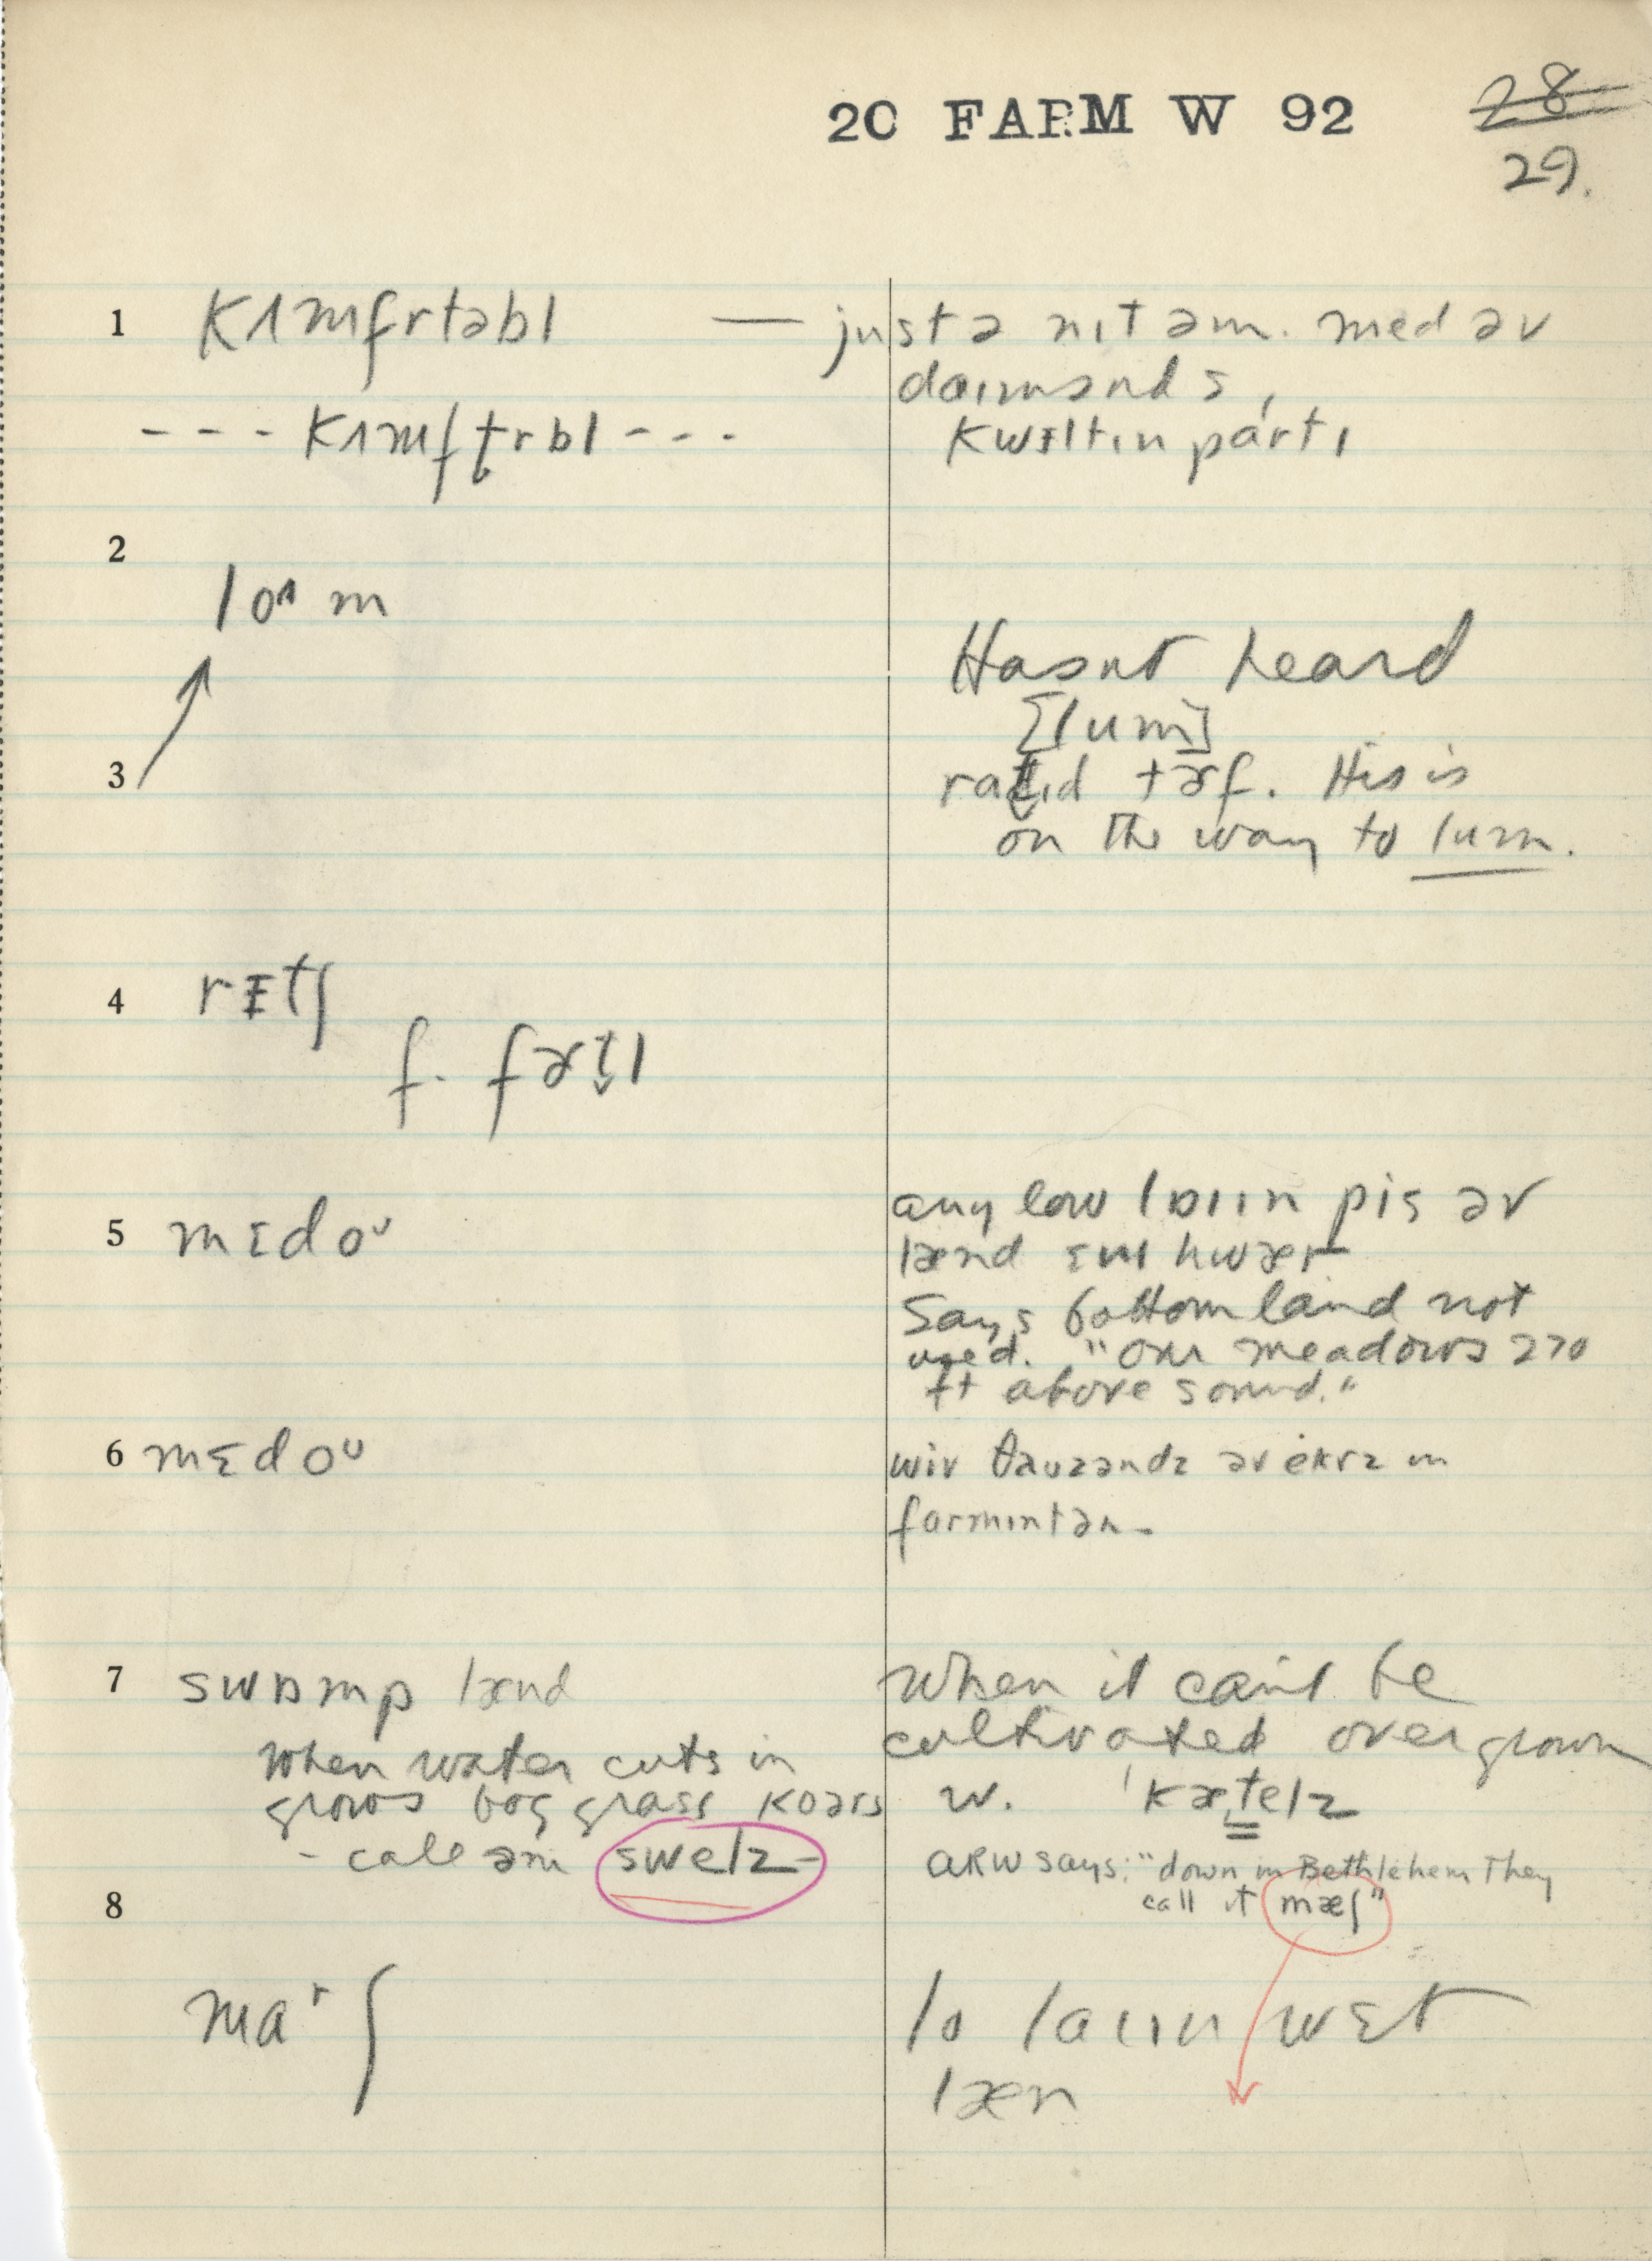 20 FARM W 92
28
29.
1 kʌmfrtəbl — just ə nɪt əm. med əv
daɪmənds,
- - - kʌmftrbl - - - kwɪltɪn pártɪ
2
loʌm
Hasnt heard
[lum]
3
raṱɪd tɚf. His is
on the way to lum.
4 rɪtʃ
f. fɚt̬l
5 mɛdoᴜ any low lɒɪɪn pis əv
lænd ɛnɪ hwær
Says bottom land not
used. "our meadows 270
ft above sound."
6 mɛdoᴜ wiv θauzəndz əv ekrz in
farmɪntən-
7 swɒmp lænd When it can't be
cultivated over grown
when water cuts in
grows bog grass koərs w. 'kæˌtelz
- call əm swelz - ARW says: "down in Bethlehem They
call it mæʃ"
8
maʳʃ lo laɪɪn wɛt
læn